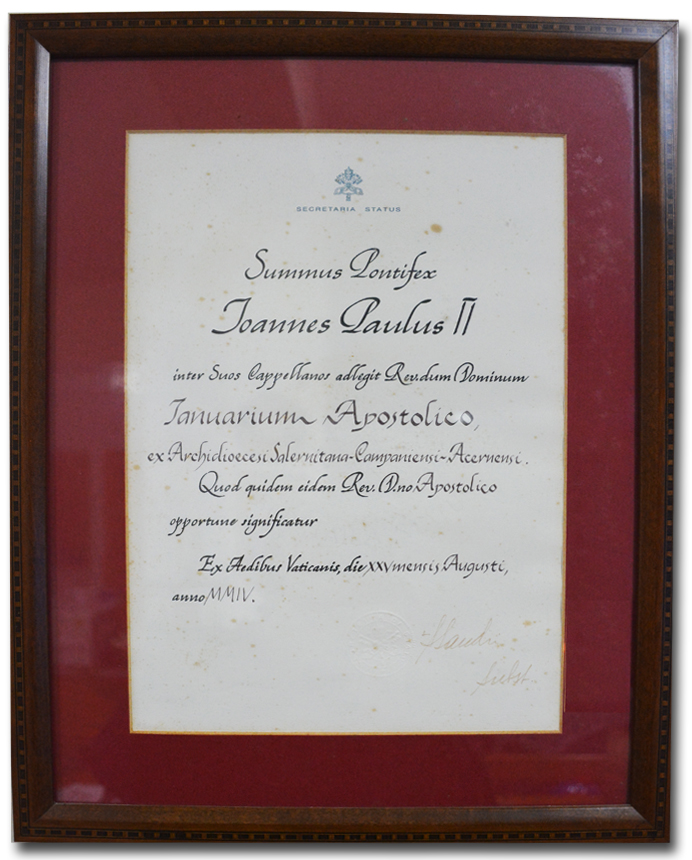 SECRETARIA STATUS
Summus Pontifex
Ioannes Paulus II
inter Suos Cappellanos adlegit Rev.dum Dominum
Ianuarium Apostolico,
ex Archidioecesi Salernitana-Campaniensi-Acernensi.
Quod quidem eidem Rev. D.no Apostolico
opportune significatur
Ex Aedibus Vaticanis, die XXV mensis Augusti,
anno MMIV.